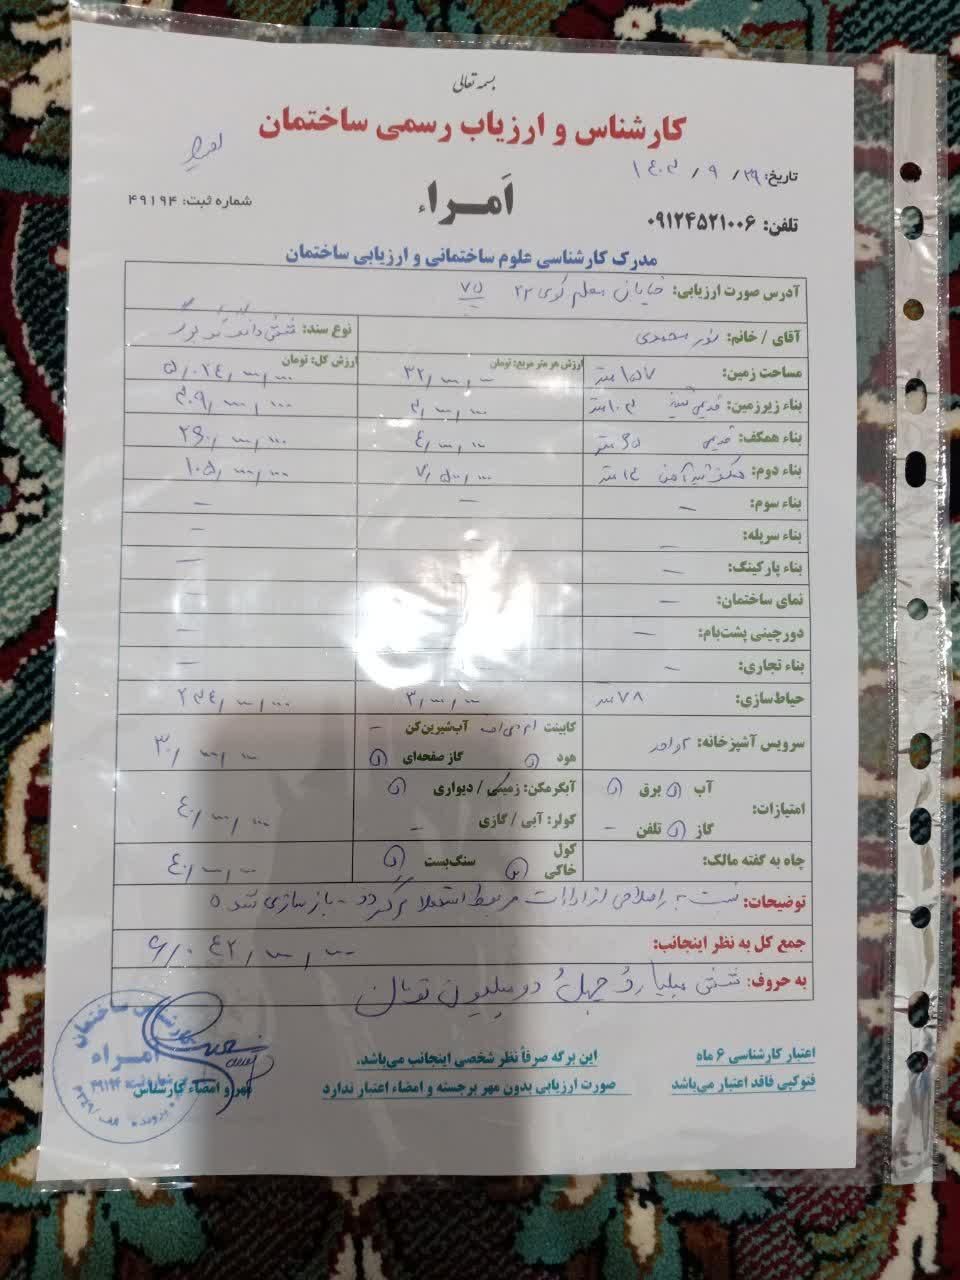 بسمه تعالی
کارشناس و ارزیاب رسمی ساختمان
تاریخ: ۱۴۰۳ / ۹ / ۲۹
اَمـراء
تلفن: ۰۹۱۲۴۵۲۱۰۰۶
شماره ثبت: ۴۹۱۹۴
مدرک کارشناسی علوم ساختمانی و ارزیابی ساختمان
آدرس صورت ارزیابی: خیابان معلم کوی ۲۲ ۷۵
آقای / خانم: نوع سند: ششدانگ
مساحت زمین: ۱۵۷ متر ارزش هر متر مربع: تومان ۳۲/۰۰۰/۰۰۰ ارزش کل: تومان ۵/۰۲۴/۰۰۰/۰۰۰
بناء زیرزمین: قدیمی ۱۰۳ متر ۳/۰۰۰/۰۰۰ ۳۰۹/۰۰۰/۰۰۰
بناء همکف: قدیمی ۶۵ متر ۴/۰۰۰/۰۰۰ ۲۶۰/۰۰۰/۰۰۰
بناء دوم: آهن ۱۴ متر ۷/۵۰۰/۰۰۰ ۱۰۵/۰۰۰/۰۰۰
بناء سوم: – – –
بناء سرپله: – – –
بناء پارکینگ: – –
نمای ساختمان: – –
دورچینی پشت‌بام: – –
بناء تجاری: – – –
حیاط‌سازی: ۷۸ متر ۳/۰۰۰/۰۰۰ ۲۳۴/۰۰۰/۰۰۰
سرویس آشپزخانه: ۲ واحد کابینت ام دی اف آب‌شیرین‌کن – ۳۰/۰۰۰/۰۰۰
هود گاز صفحه‌ای
امتیازات: آب برق آبگرمکن: زمینی / دیواری ۴۰/۰۰۰/۰۰۰
گاز تلفن – کولر: آبی / گازی –
چاه به گفته مالک: کول خاکی سنگ‌بست ۴۰/۰۰۰/۰۰۰
توضیحات: نسبت به اصلاحی از ادارات مربوط استعلام گردد - بازسازی شده
جمع کل به نظر اینجانب: ۶/۰۴۲/۰۰۰/۰۰۰
به حروف: شش میلیارد و چهل و دو میلیون تومان
اعتبار کارشناسی ۶ ماه
این برگه صرفاً نظر شخصی اینجانب می‌باشد.
فتوکپی فاقد اعتبار می‌باشد
صورت ارزیابی بدون مهر برجسته و امضاء اعتبار ندارد
مهر و امضاء کارشناس
کارشناس ساختمان
امراء
شماره ثبت ۴۹۱۹۴